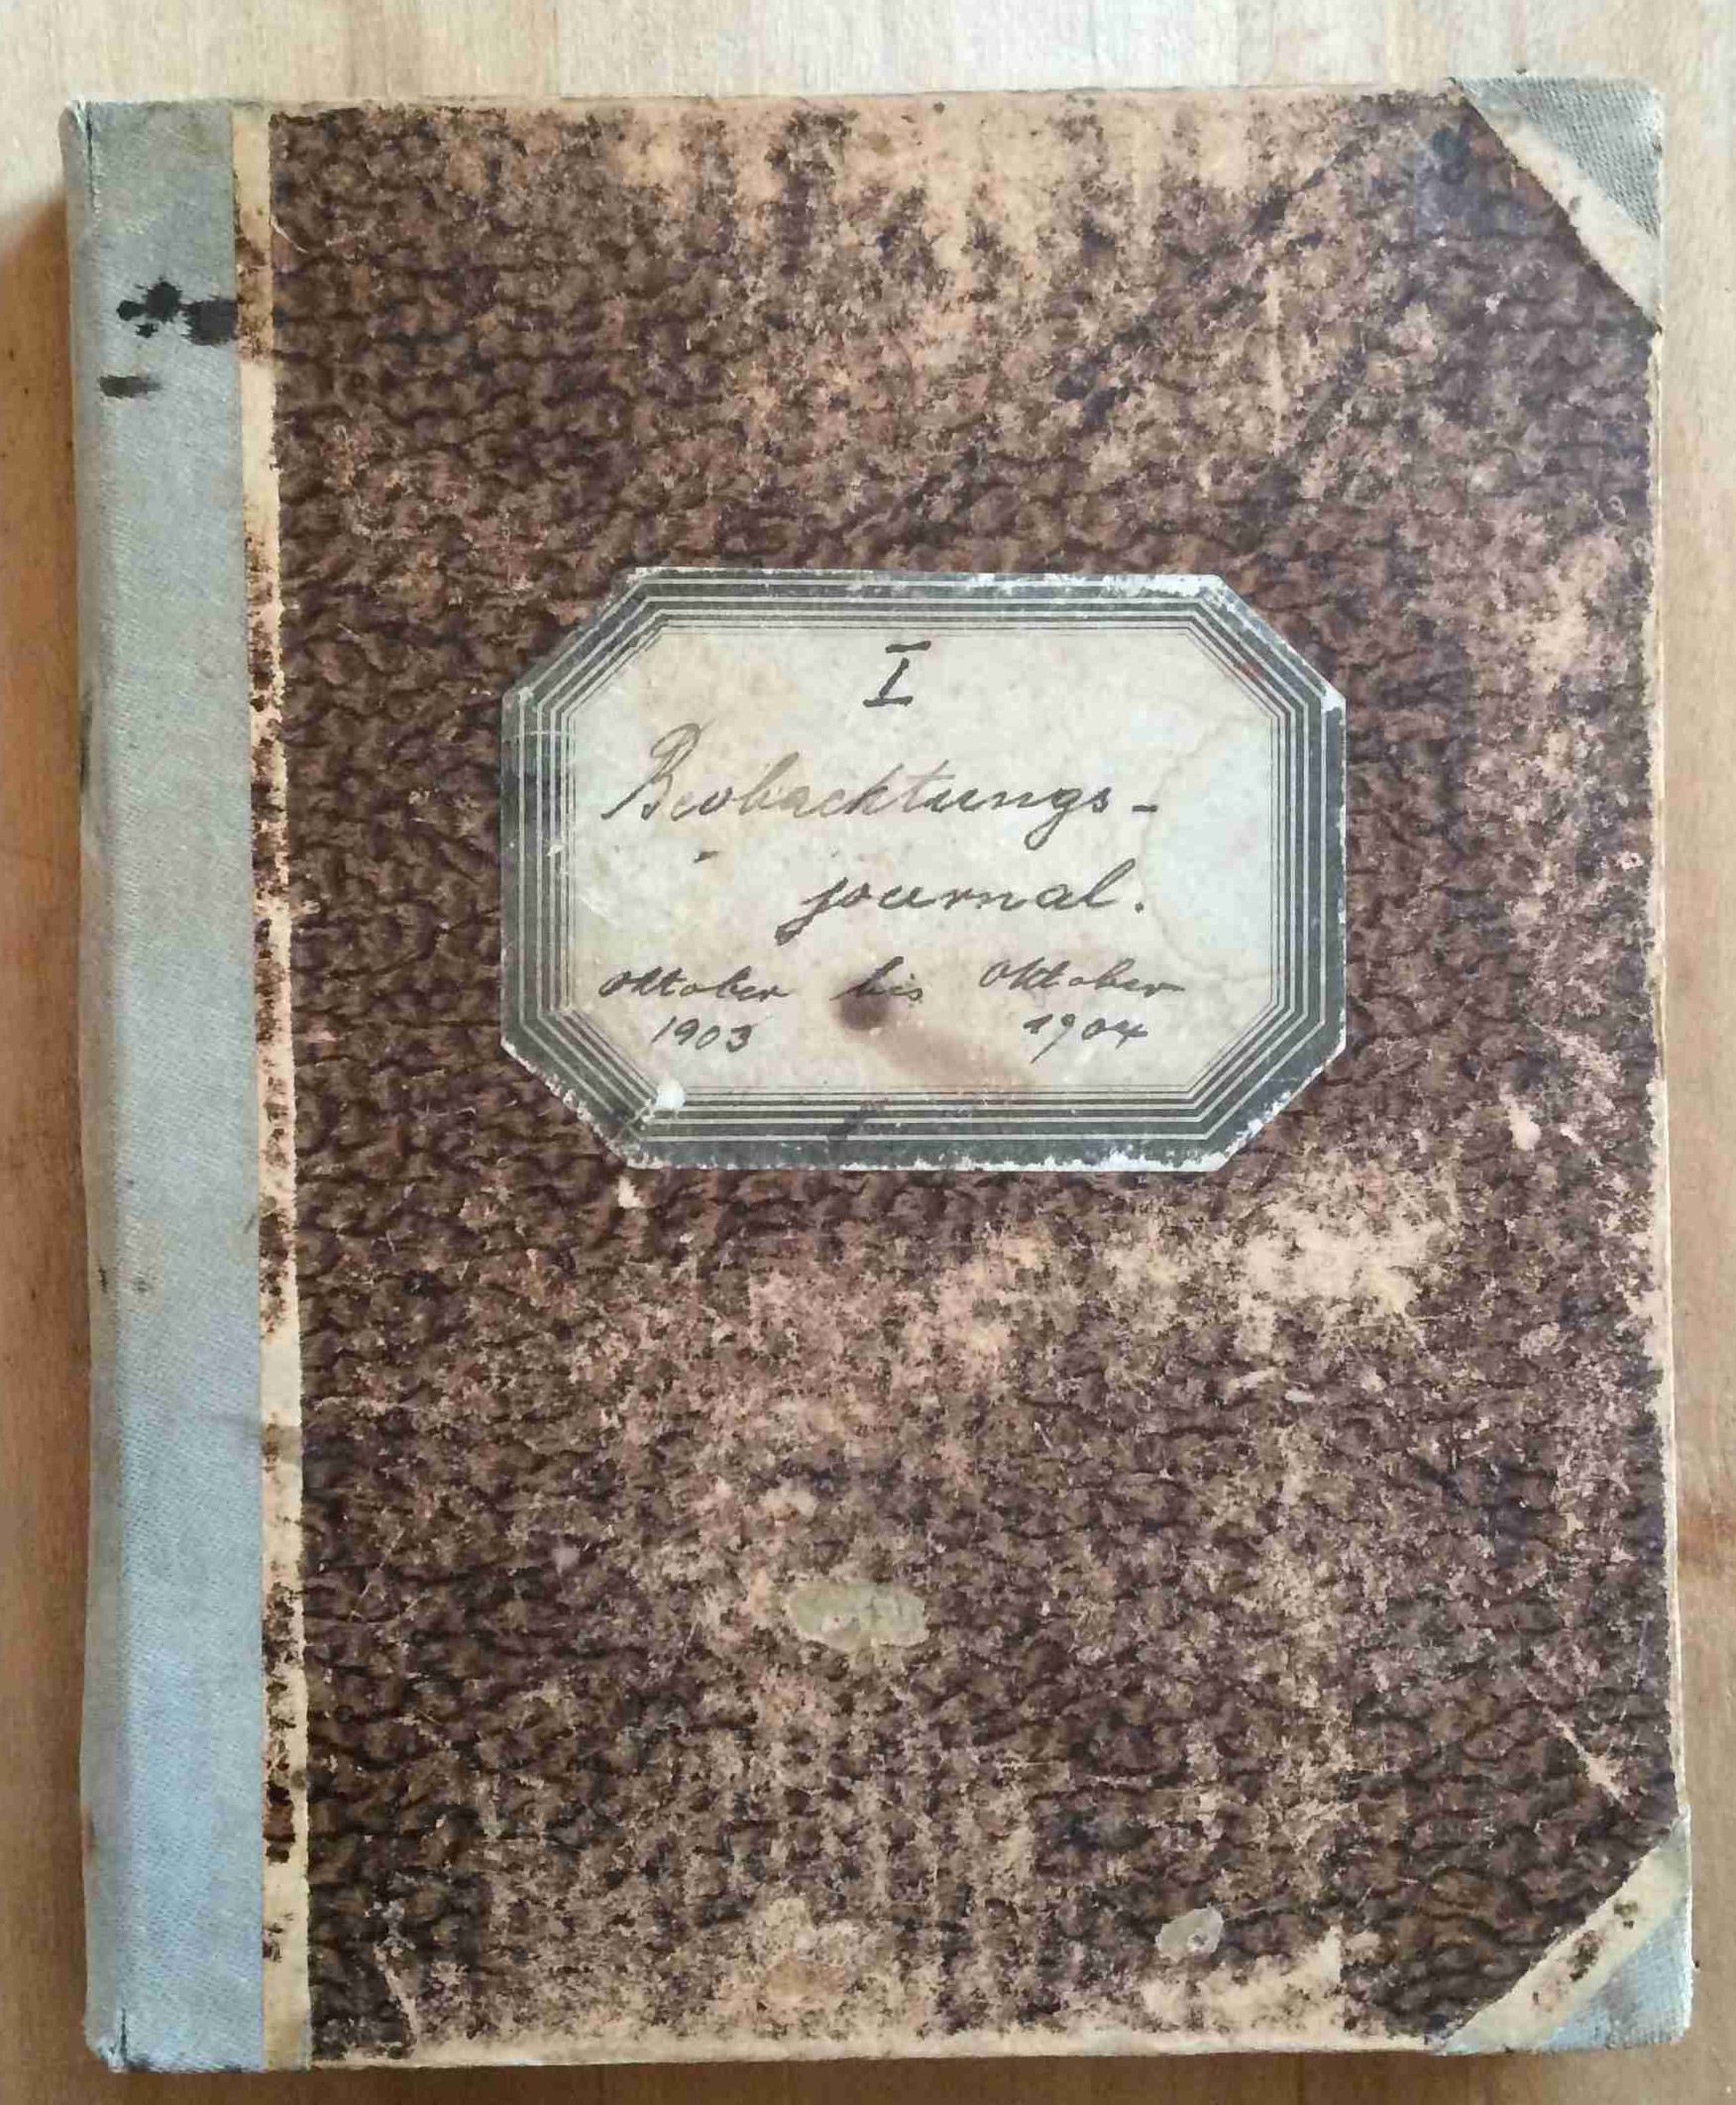 I
Beobachtungs-
journal.
Oktober bis Oktober
1903 1904